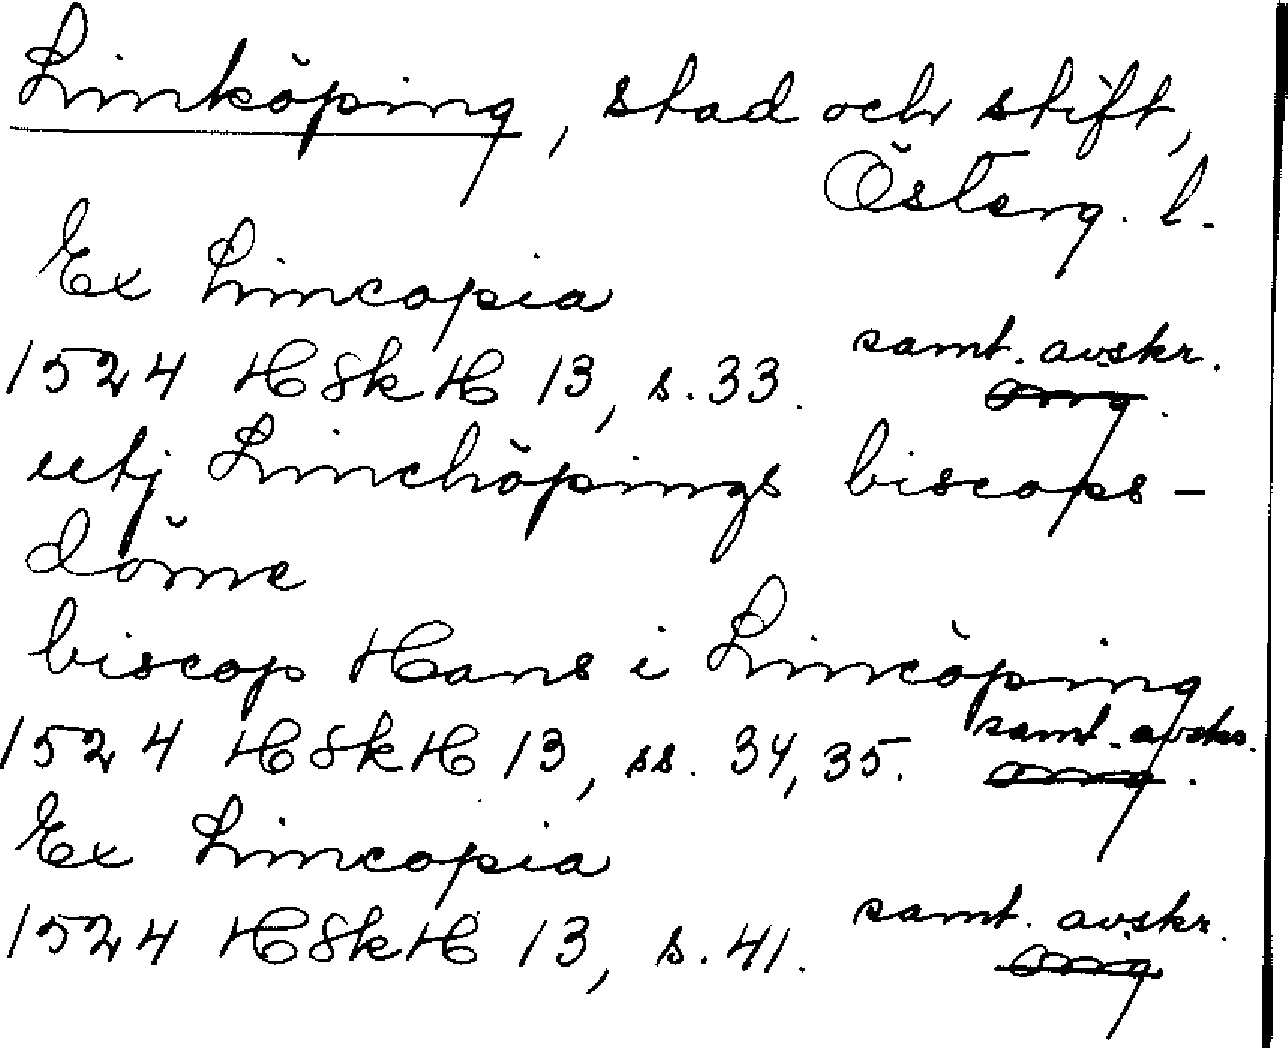 Linköping, stad och stift,
Österg. l.
Ex Lincopia
1524 HSkH 13, s. 33. samt. avskr.
utj Linchöpings biscops-
döme
biscop Hans i Lincöping
1524 HSkH 13, ss. 34, 35. samt. avskr.
Ex Lincopia
1524 HSkH 13, s. 41. samt. avskr.